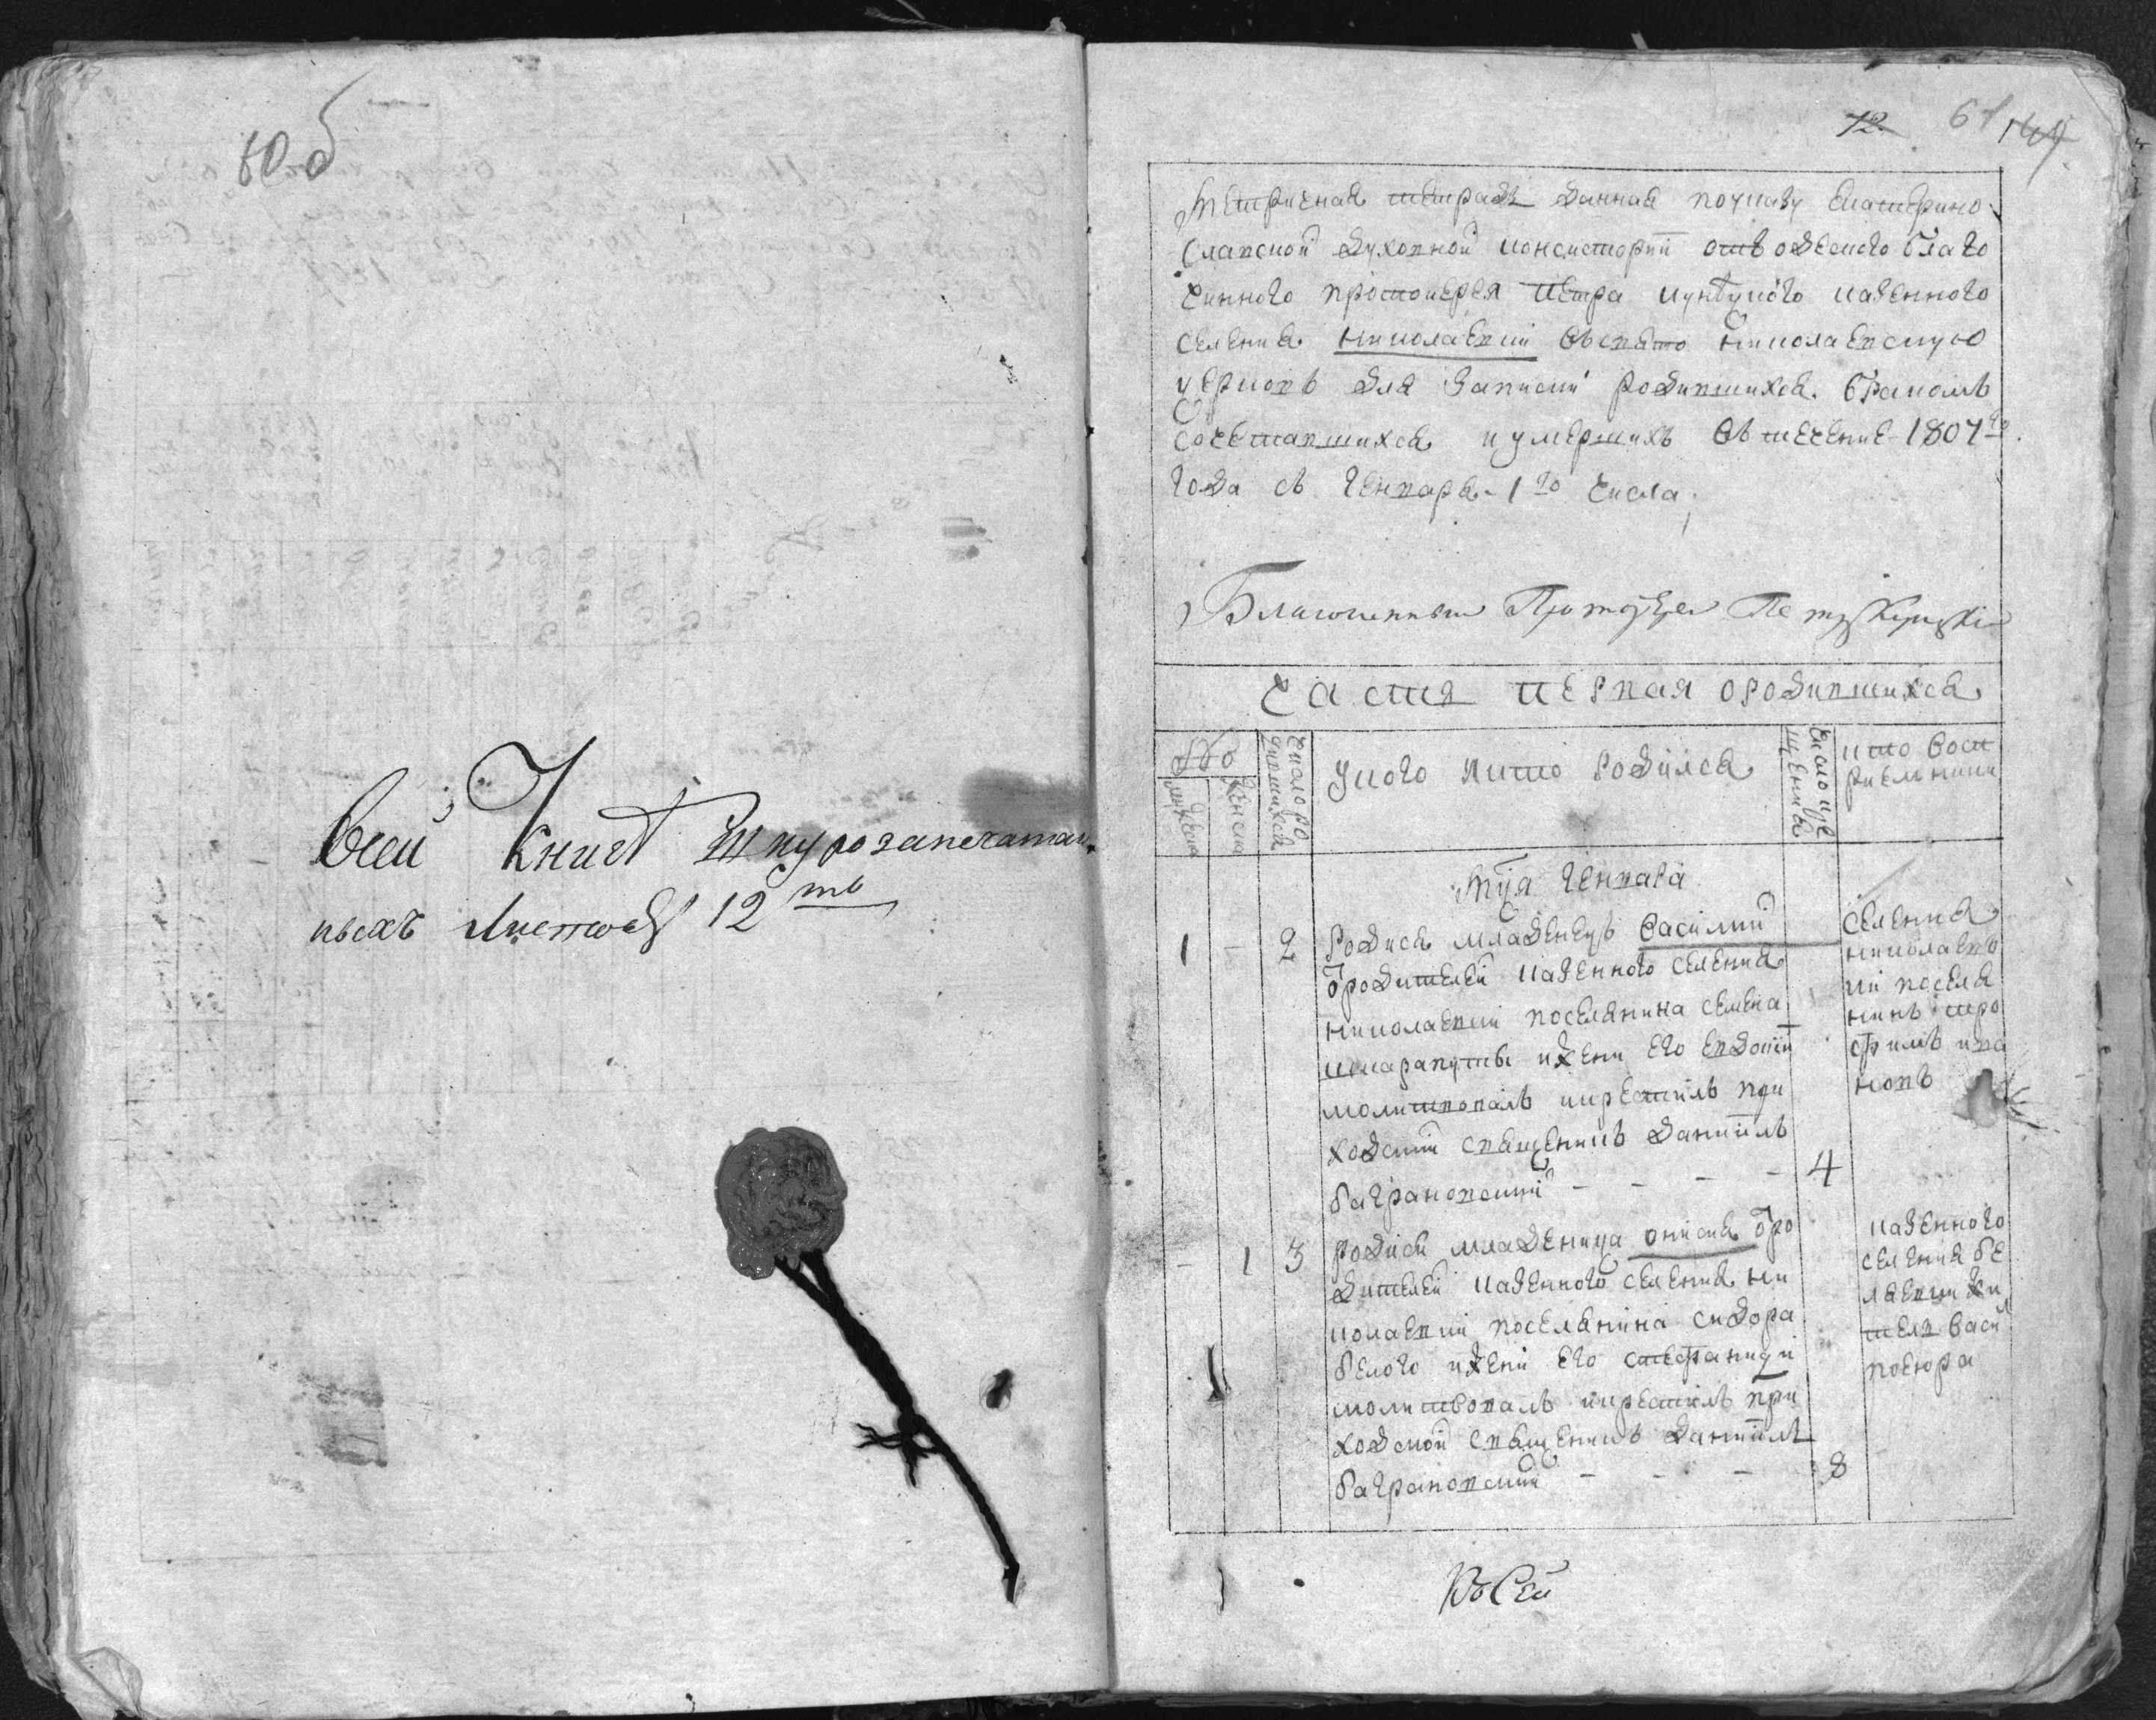 60 об
всей Книгѣ Шнурозапечатан.
ныхъ Листовъ 12 ть
12. 61
Метричная тетрадь данная поуказу Екатерино
славской духовной консисторіи отъ одескаго благо
чинного протоиерея Петра куницкого казенного
селения николаевки въ свято николаевскую
церковь для записки родившихся. бракомъ
сочетавшихся и умершихъ въ течение 1807 го
года съ генваря 1 го числа.
Благочинный Протоіерей Петръ Куницкій
часть первая о родившихся
число ро
дившихся
мужска
женска
у кого кто родился
число кре
щения
кто восп
риемники
М-ця генваря
1 - 2
Родися младенецъ василий
ѿ родителей казенного селения
николаевки поселянина семена
шкарапуты и жени его евдокіи
молитвовалъ и крестилъ при
ходский священникъ данііилъ
баграновский - - - - 4
селения
николаев
ки поселя
нинъ тро
фимъ ива
новъ
- 1 3
родися младеница онисия ѿ ро
дителей казенного селения ни
колаевки поселянина сидора
белого и жени его стефаниди
молитвовалъ и крестилъ при
ходской священникъ данііилъ
баграновский - - - 8
казенного
селения бе
ляевки жи
тель васил
Въ Сей